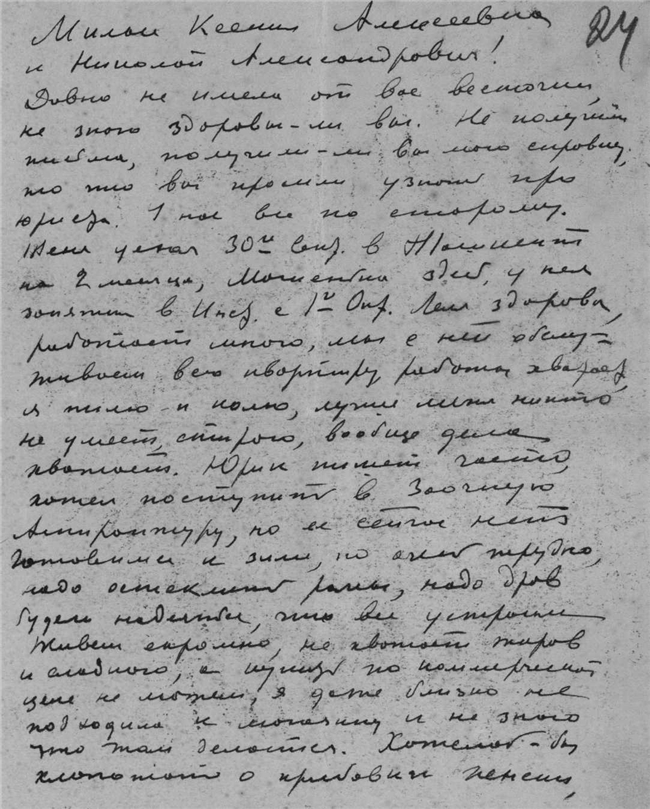 Милые Ксения Алексеевна 24
и Николай Александрович!
Давно не имела от вас весточки,
не знаю здоровы-ли вы. Не получили
письма, получили-ли вы мою справку,
то что вы просили узнать про
юриста. У нас все по старому.
Женя уехал 30го Сент. в Ташкент
на 2 месяца, Может быть здесь, у нея
занятия в Инст. с 1го Окт. Леля здорова,
работает много, мы с ней обслу-
живаем всю квартиру работы хватает,
я пилю и колю, лучше меня никто
не умеет, стираю, вообще дела
хватает. Юрик пишет часто,
хотел поступить в Заочную
Аспирантуру, но ее сейчас нет
Готовимся к зиме, но очень трудно,
надо остеклить рамы, надо дров
будем надеяться, что все устроим
Живем скромно, не хватает жиров
и сладкого, а купить по коммерческой
цене не можем, я даже близко не
подходила к магазину и не знаю
что там делается. Хотелось-бы
хлопотать о прибавки пенсии,